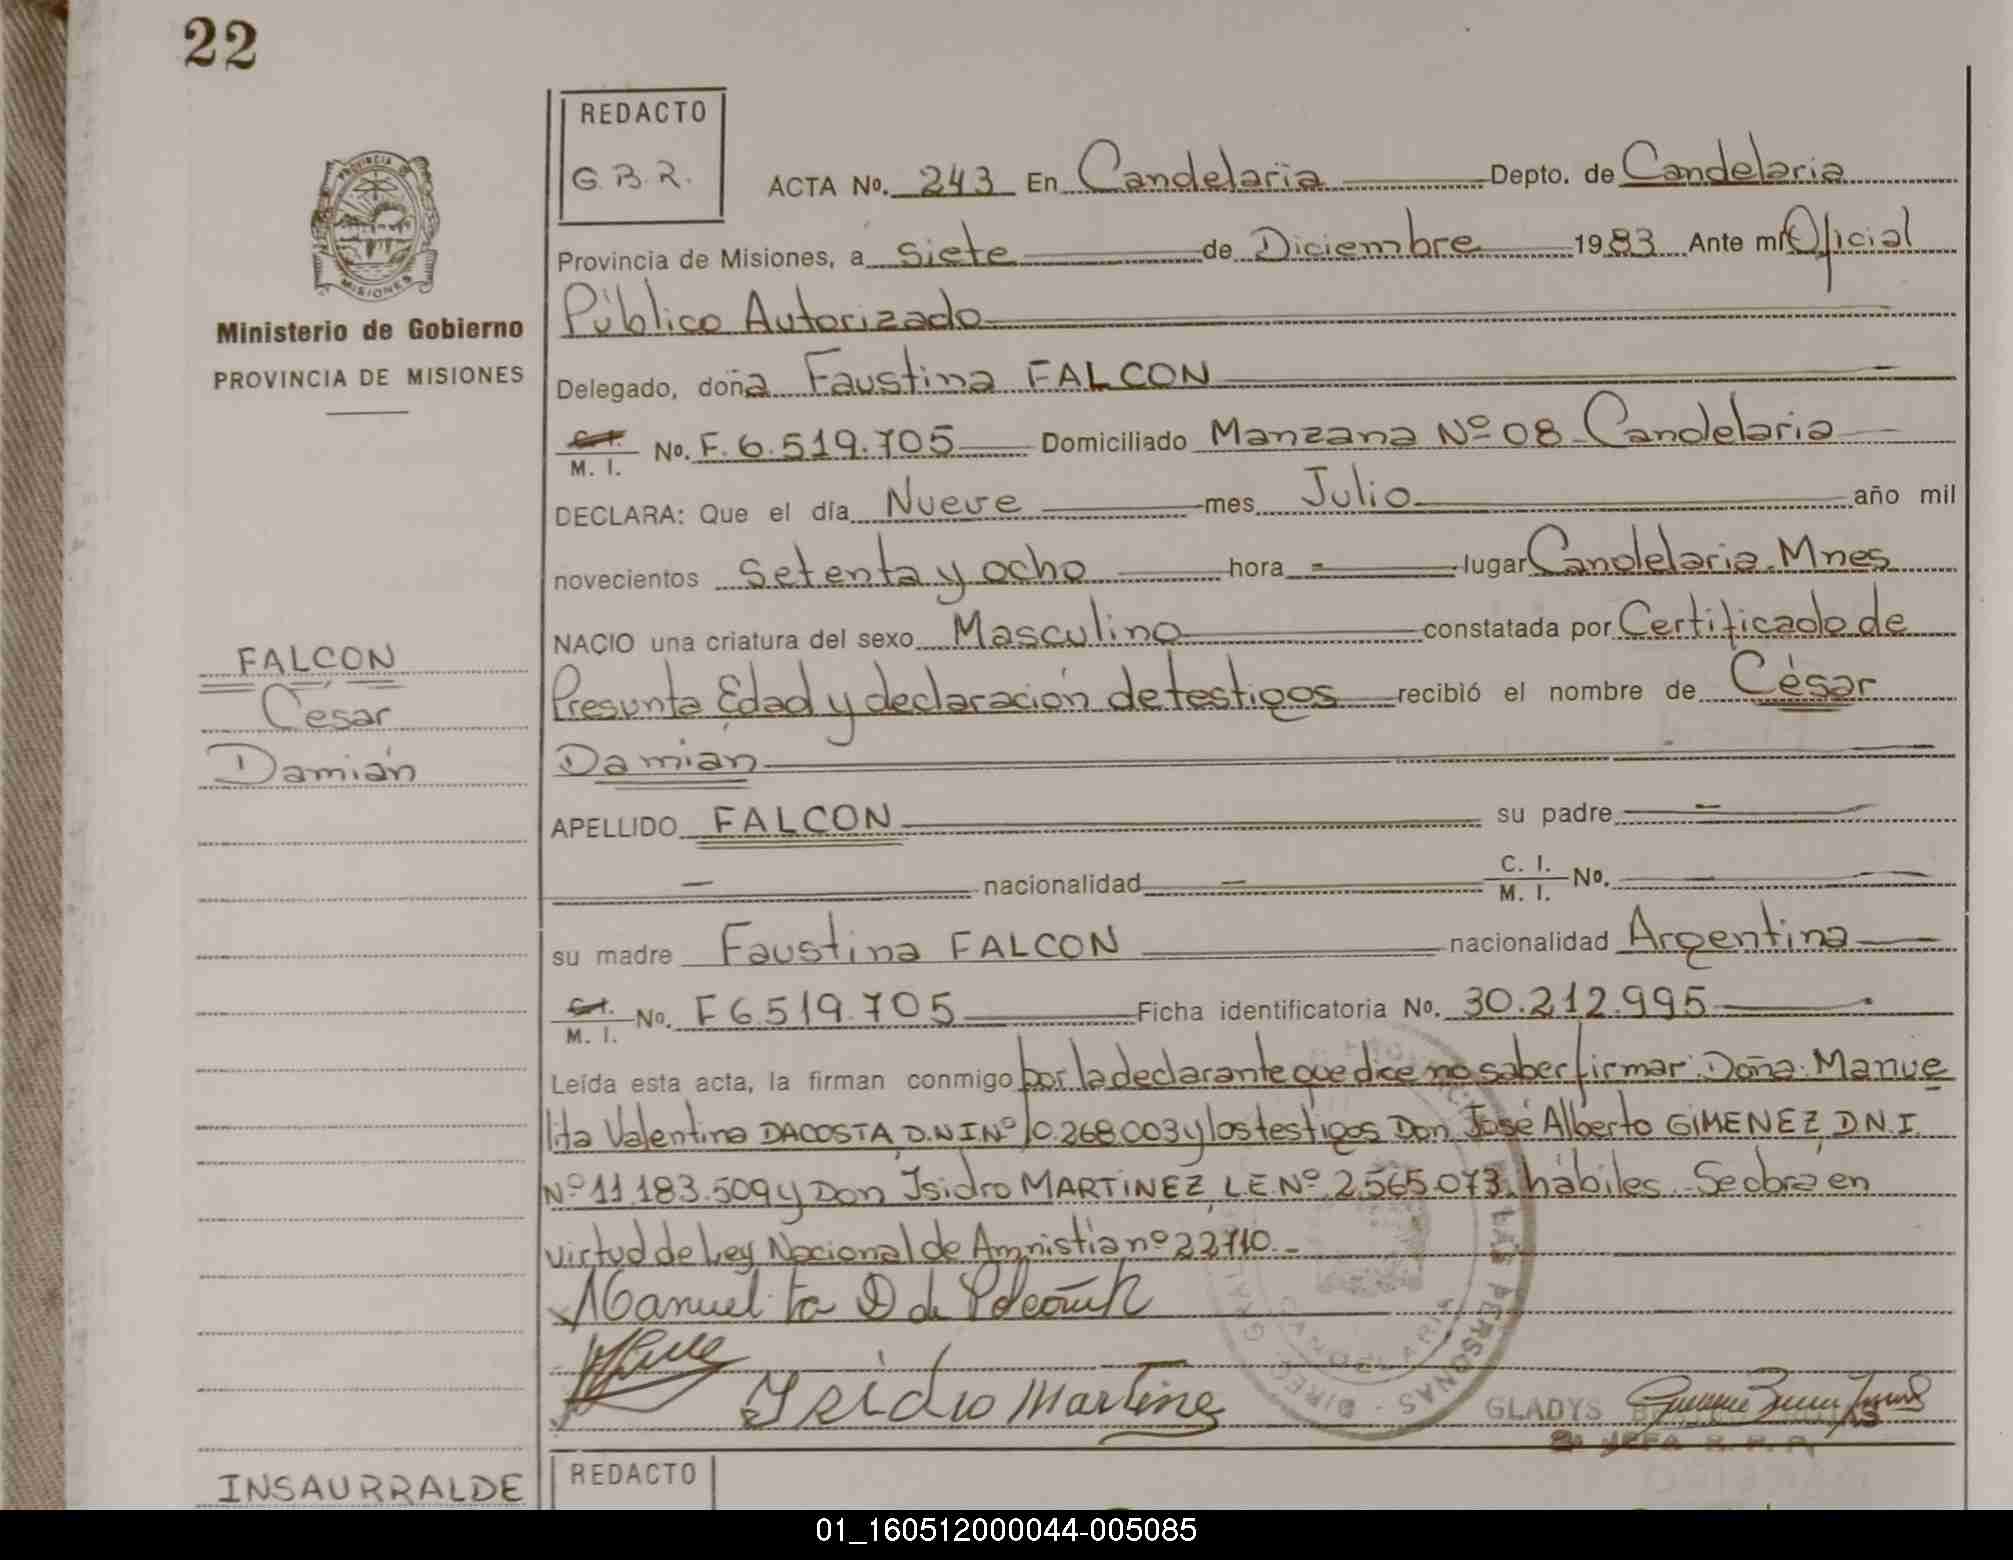 22
REDACTO
G.B.R.
PROVINCIA DE
MISIONES
Ministerio de Gobierno
PROVINCIA DE MISIONES
ACTA No. 243 En Candelaria Depto. de Candelaria
Provincia de Misiones, a siete de Diciembre 1983 Ante mí Oficial
Público Autorizado
Delegado, doña Faustina FALCON
C.I. M. I. No. F. 6.519.705 Domiciliado Manzana Nº 08 Candelaria
DECLARA: Que el día Nueve mes Julio año mil
novecientos setenta y ocho hora - lugar Candelaria. Mnes
NACIO una criatura del sexo Masculino constatada por Certificado de
Presunta Edad y declaración de testigos recibió el nombre de César
Damián
FALCON
César
Damián
APELLIDO FALCON su padre -
- nacionalidad - C. I. M. I. No. -
su madre Faustina FALCON nacionalidad Argentina
C.I. M. I. No. F 6.519.705 Ficha identificatoria No. 30.212.995
Leída esta acta, la firman conmigo por la declarante que dice no saber firmar Doña Manue
lita Valentina DACOSTA, D.N.I.Nº 10.268.003 y los testigos Don José Alberto GIMENEZ, D.N.I.
Nº 11.183.509 y Don Isidro MARTINEZ, L.E.Nº 2.565.073. hábiles. Se obra en
virtud de Ley Nacional de Amnistia nº 22710.-
Manuelita D de
Isidro Martinez
LAS PERSONAS - DIREC. GRAL.
CANDELARIA
GLADYS
INSAURRALDE
REDACTO
01_160512000044-005085